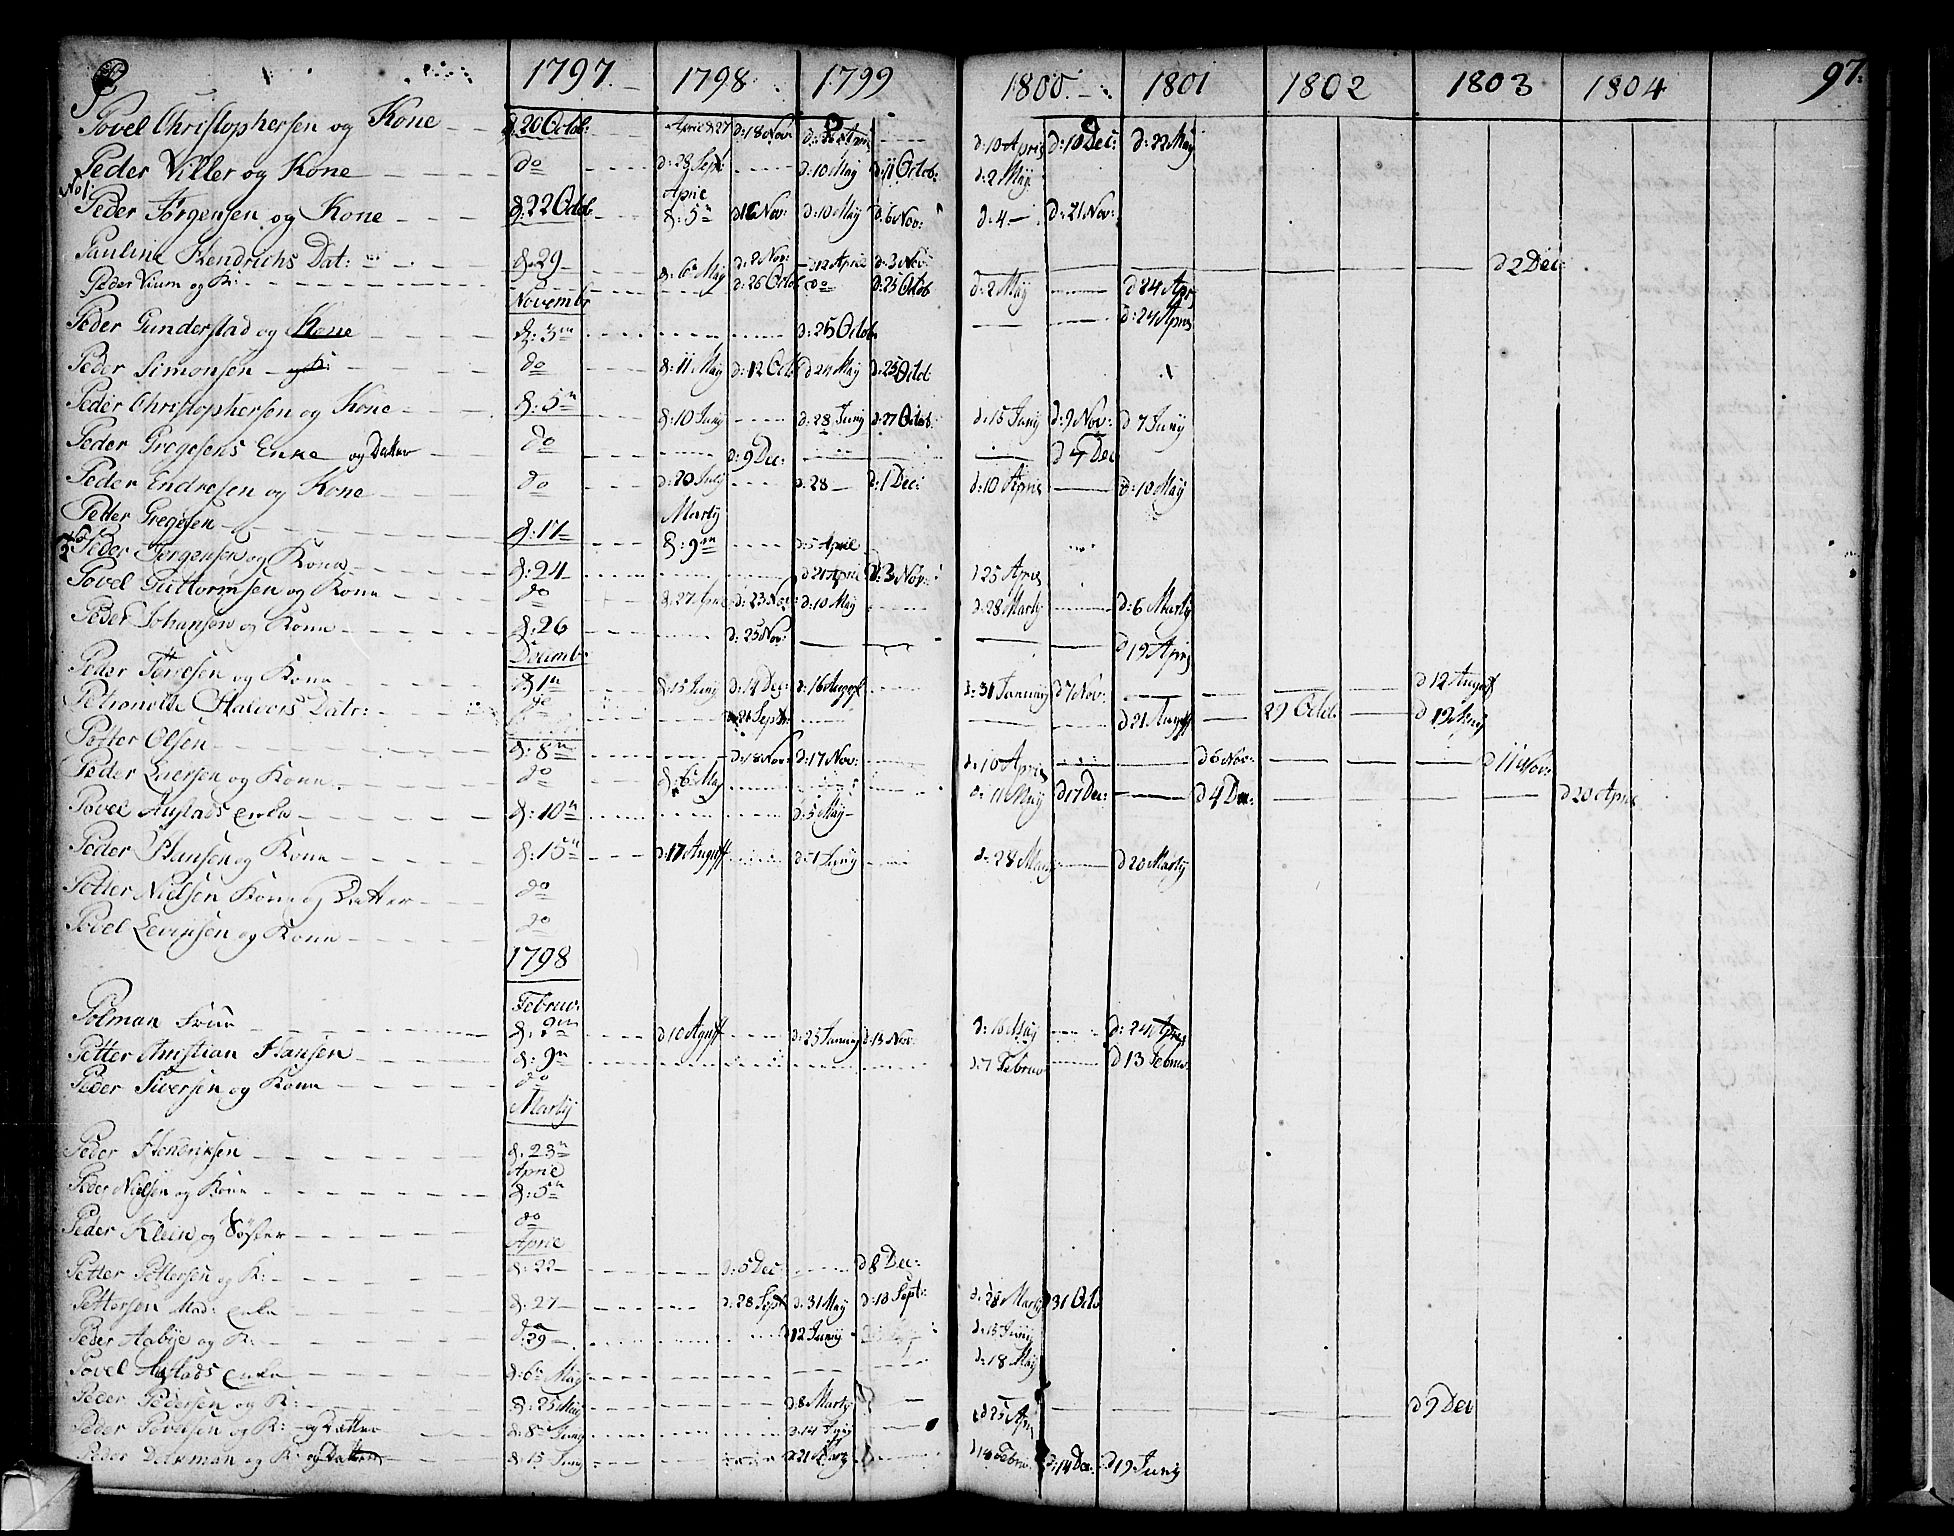 P. 1797. 1798. 1799 1800. 1801 1802 1803 1804 97.
Povel Christophersen og Kone d. 20 Octob: Aprie d 27 d: 18 Nov d: 10 Apris d: 10 Dec: d: 22 Maÿ
Peder Viller og Kone do d: 28 Sept d: 10 Maÿ d: 11 Octob: d: 2 Maÿ
No 1: Peder Jørgensen og Kone d. 22 Octob Aprie d: 5te d 16 Nov: d: 10 Maÿ d: 6 Nov: d: 4 d: 21 Nov:
Pauline Hendrichs Dat: d. 29 d: 6 Maÿ d: 2 Nov: d 12 Aprie d: 3 Nov: d 2 Dec:
Peder Vium og K: d: 26 Octob do d: 25 Octob d: 2 Maÿ d 24 Apris
Novembr
Peder Gunderstad og Kone d: 3te d: 25 Octob d: 24 Apris
Peder Simonsen og K: do d: 11 Maÿ d: 12 Octb d 24 Maÿ d: 25 Octob
Peder Christophersen og Kone d: 5te d: 10 Junÿ d: 28 Junÿ d: 27 Octob: d: 15 Junÿ d: 9 Nov: d 7 Junÿ
Peder Gregesens Enke og Datter do d: 9 Dec: d 7 Dec
Peder Endresen og Kone do d: 20 Julÿ d: 28 d: 1 Dec: d: 10 Apris d: 10 Maÿ
Petter Gregesen d: 17 Martÿ d: 9de d: 5 Aprie
No 2 Peder Jørgensen og Kone d: 24 d 21 Aprie d: 3 Nov: d 25 Apris
Povel Guttormsen og Kone do d: 27 Aprie d: 23 Nov: d: 10 Maÿ d: 28 Martÿ d: 6 Martÿ
Peder Johansen og Kone d: 26 d: 25 Nov: d 19 Apris
Decembr
Peder Torresen og Kone d: 1te d: 15 Junÿ d: 14 Dec: d: 16 Augst d: 31 Januarÿ d 7 Nov: d 12 Augst
Petronille Halvors Datr: do d 21 Sept: d 21 Augst 29 Octb: d 19 Maÿ
Petter Olsen d: 8te d: 18 Nov: d: 17 Nov: d: 10 Apris d 6 Nov: d 11 Nov:
Peder Iversen og Kone do d: 6 Maÿ d: 11 Maÿ d 17 Dec: d 4 Dec: d 20 Apris
Povel Austads Enke d: 10de d: 5 Maÿ
Peder Hansen og Kone d: 15de d: 17 Augst d: 1 Junÿ d: 28 Maÿ d 20 Martÿ
Petter Nielsen Kone og Datter do
Povel Levinsen og Kone do
1798
Februr:
Polman Frue d: 9de d 10 Agust d: 25 Januarÿ d 13 Nov: d: 16 Maÿ d: 24 Apris
Petter Christian Hansen d: 9de d 7 Februr d 13 Februr.
Peder Siversen og Kone do
Martÿ
Peder Hendriksen d: 23de
Aprie
Peder Nielsen og Kone d: 5te
Peder Klein og Søster do
Aprie
Petter Pettersen og K: d: 22 d: 5 Dec: d 8 Dec:
Pettersen Mad: Enke d: 27 d: 28 Sept: d: 31 Maÿ d: 10 Sept: d: 28 Martÿ d 31 Octb
Peder Aabÿe og K: d: 29 d 12 Junÿ d: 15 Junÿ
Povel Austads Enke d: 6te Maÿ d: 18 Maÿ
Peder Pedersen og K: d: 25 Maÿ d: 8 Martÿ d 9 Dec
Peder Povelsen og K: og Datter d: 8te Junÿ d: 14 Junÿ d 25 Apris
Peder Detkman og K: og Datter d: 15 Junÿ d 14 Februr: d: 14 Dec: d 19 Junÿ